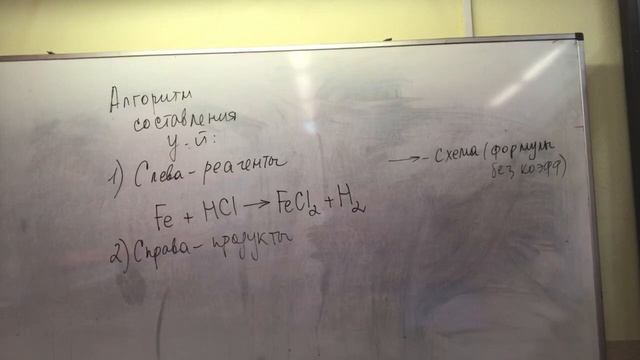 Алгоритм
составления
у-й:
1) Слева - реагенты
Fe + HCl → FeCl2 + H2
2) Справа - продукты
→ - схема (формулы
без коэфф)